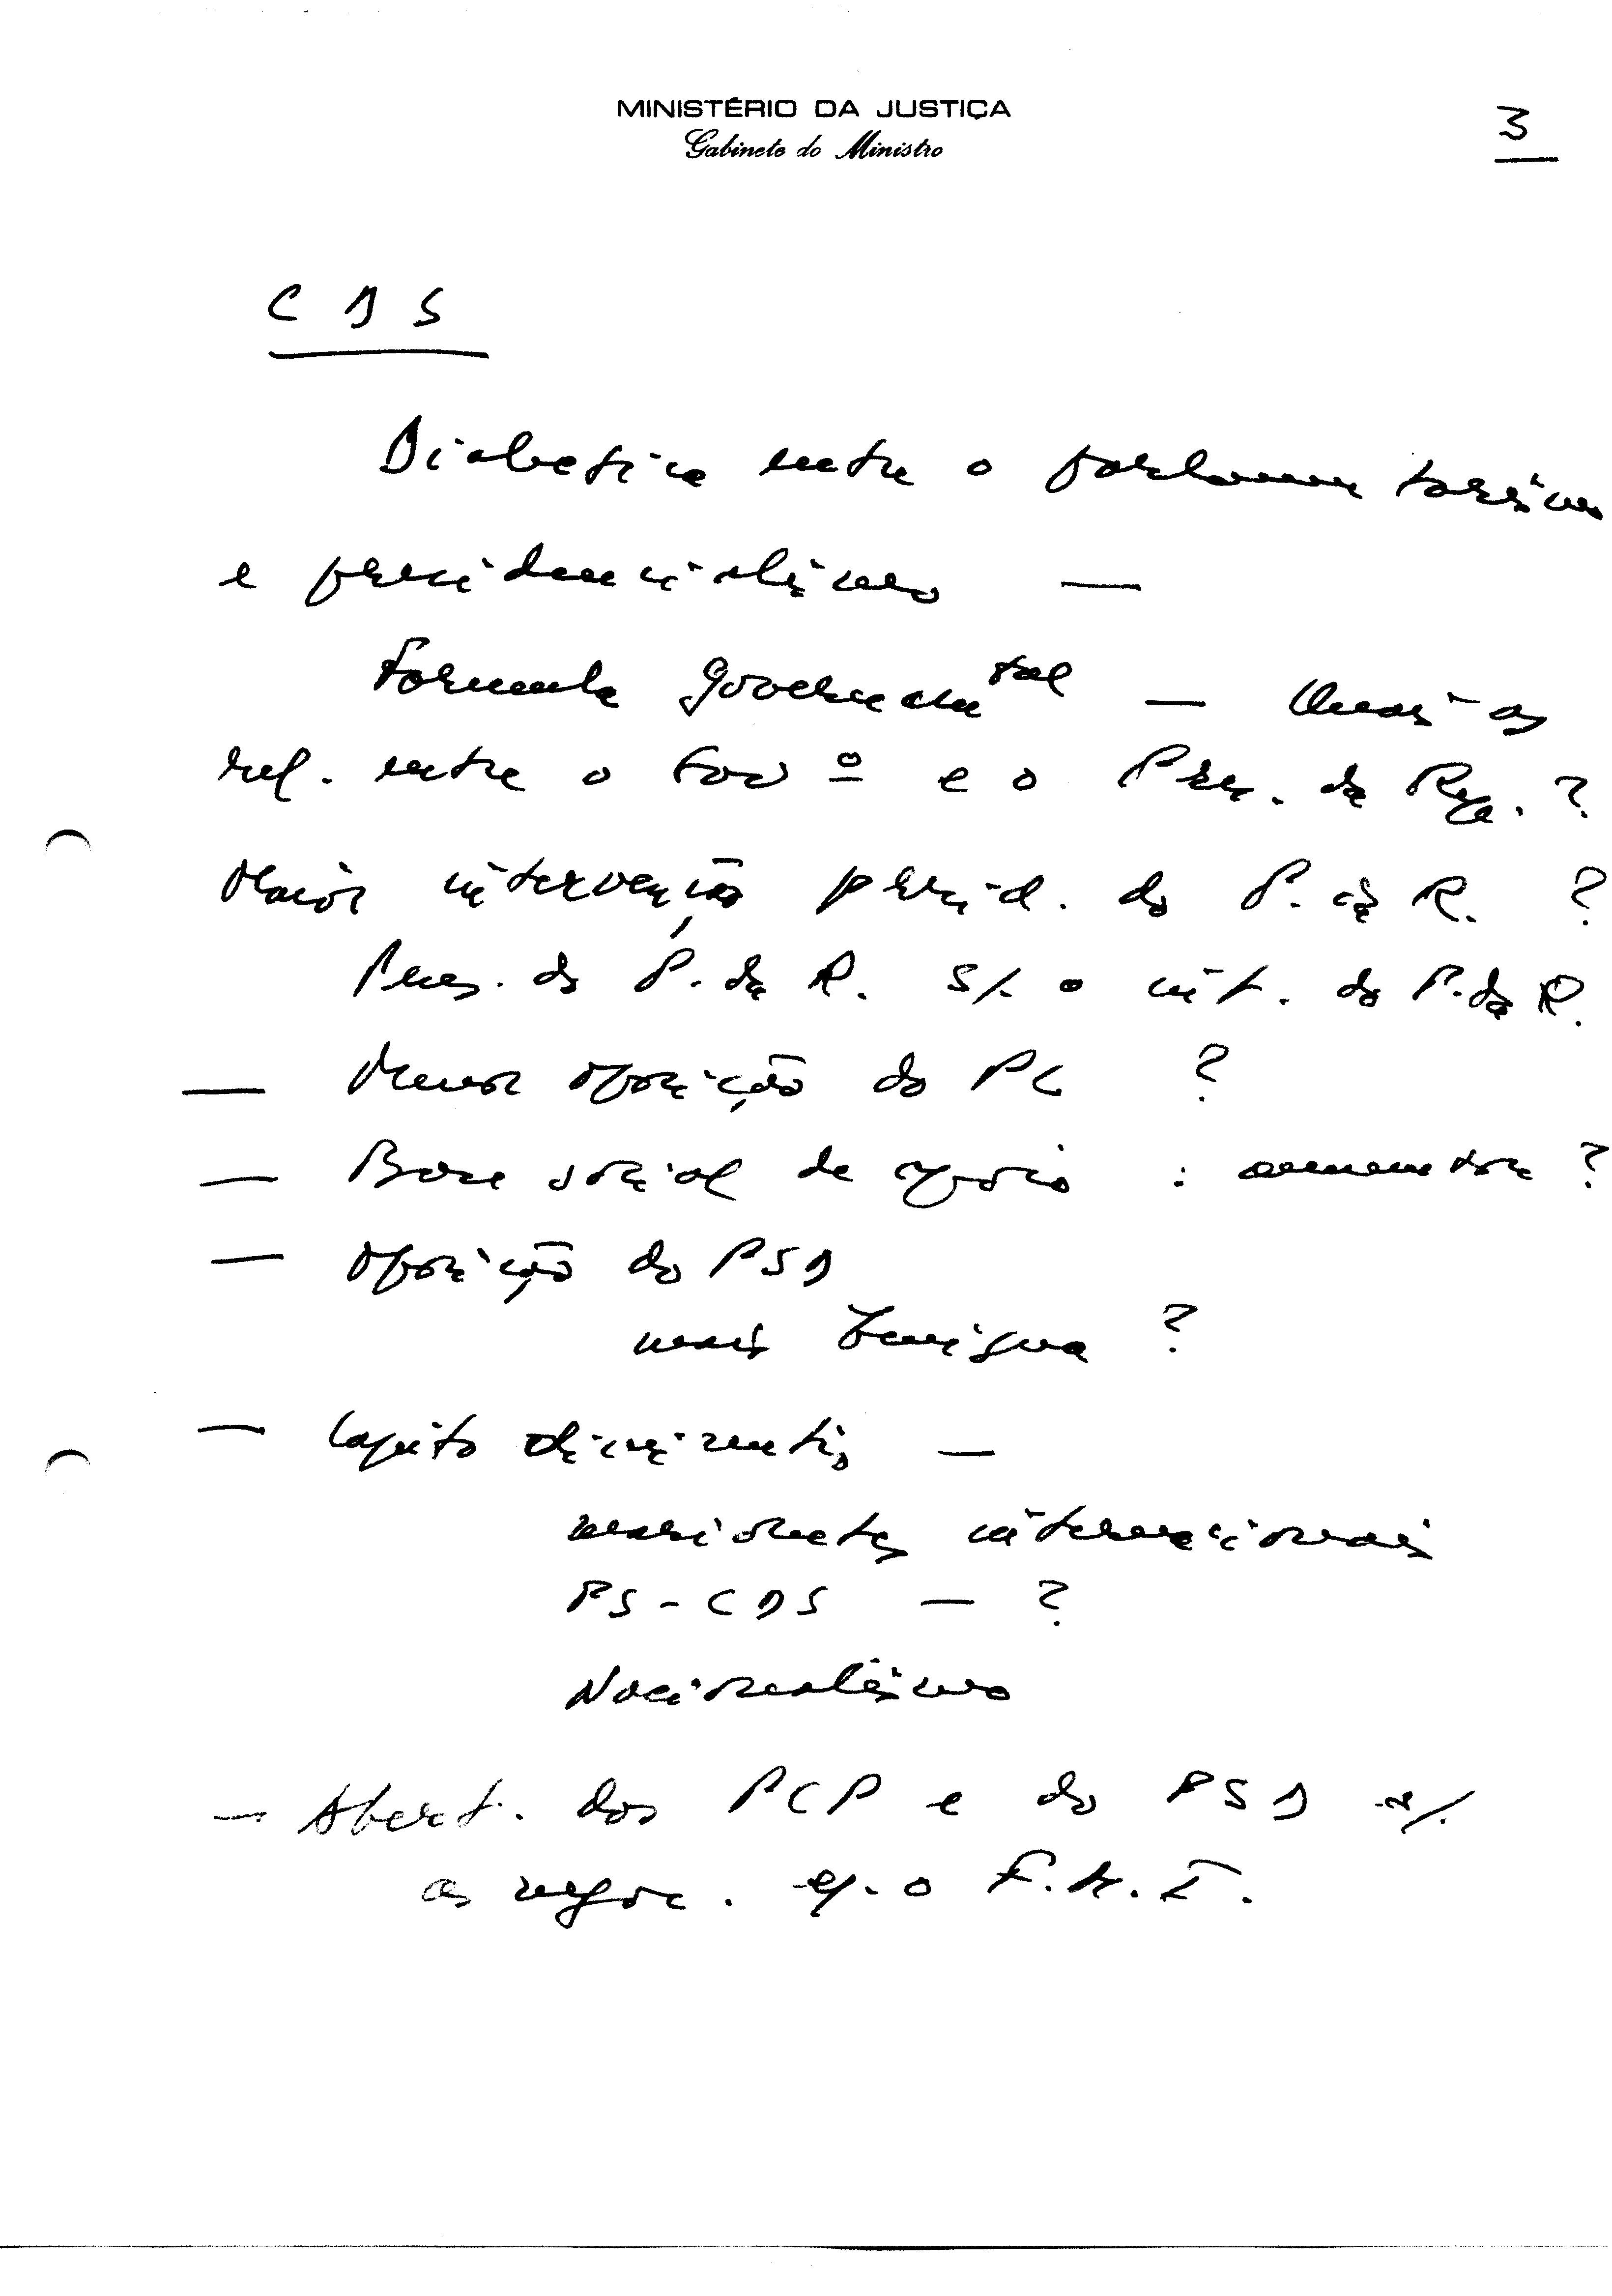 MINISTÉRIO DA JUSTIÇA
Gabinete do Ministro
3
CDS
entre o parlamentarismo
e presidencialismo —
Formula governamental — Quais as
rel. entre o Govº e o Pres. da Rep. ?
Maior intervenção presid. do P. da R. ?
Pres. do P. da R. s/. o int. do P. da R.
— Menor oposição do PC ?
— Base social de apoio : aumentou ?
— Oposição do PSD
mais benigna ?
—
internacionais
PS-CDS — ?
Nacionalismo
— Abert. dos PCP e do PSD p/.
as negoc. c/. o F.M.I.